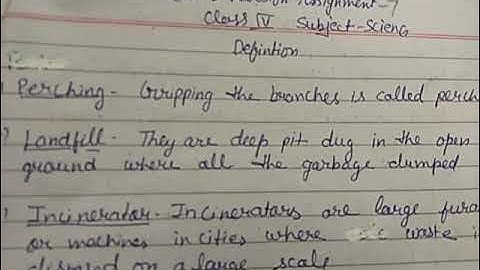 Assignment-7
Class V Subject-Scienc
Defintion
1 Perching- Gripping the branches is called perch
2) Landfill- They are deep pit dug in the open
ground where all the garbage dumped
) Incinerator- Incinerators are large
or machines in cities where waste
on a large scale